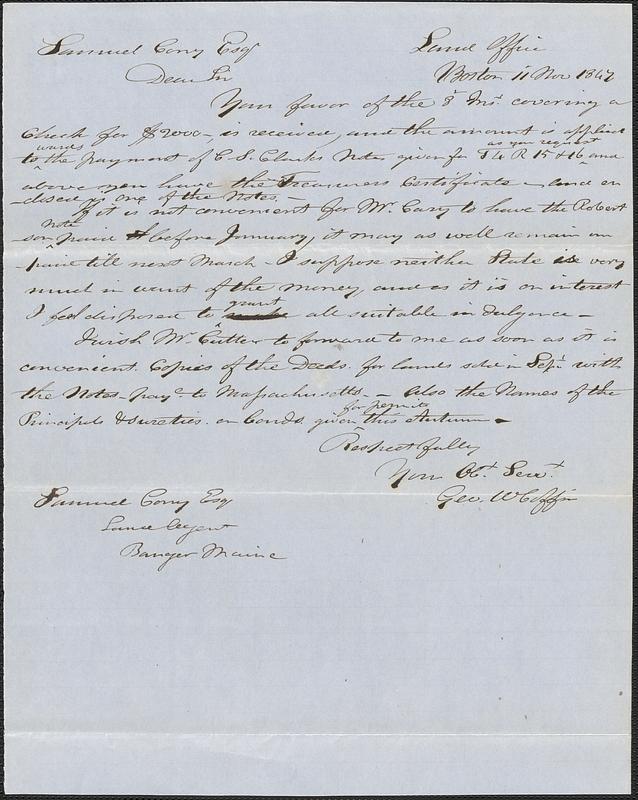 Samuel Cony Esqr
Land Office
Boston 11 Nov 1847
Dear Sir
Your favor of the 8t Inst covering a
Check for $2000-, is received, and the amount is applied
wards as you request
to the payment of E. S. Clarks Notes given for T 4 R 15 & 16 and
above you have the Treasurers Certificate - and en
closed is one of the Notes. -
If it is not convenient for Mr. Cary to have the Robert
note
son paid before January, it may as well remain un
paid till next March - I suppose neither State is very
much in want of the money, and as it is on interest
grant
I feel disposed to all suitable indulgence -
I wish Mr. Cutler to forward to me as soon as it is
convenient. Copies of the Deeds. for lands sold in Sept. with
the Notes pay.e to Massachusetts. - also the Names of the
for permits
Principals & sureties. on bonds. given this Autumn -
Respectfully
Your Obt. Servt.
Geo. W Coffin
Samuel Cony Esq
Land Agent
Bangor Maine